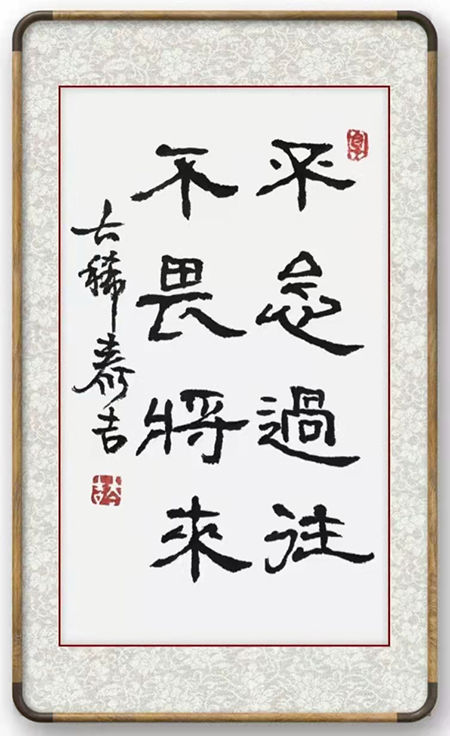 不念過往
不畏將來
古稀吉